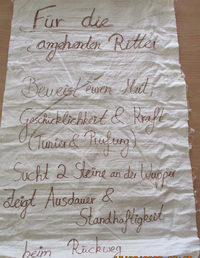 Für die
angehenden Ritter
Beweist euren Mut,
Geschicklichkeit & Kraft
(Tunier & Prüfung)
Sucht 2 Steine an der Wupper
Zeigt Ausdauer &
Standhaftigkeit
beim Rückweg